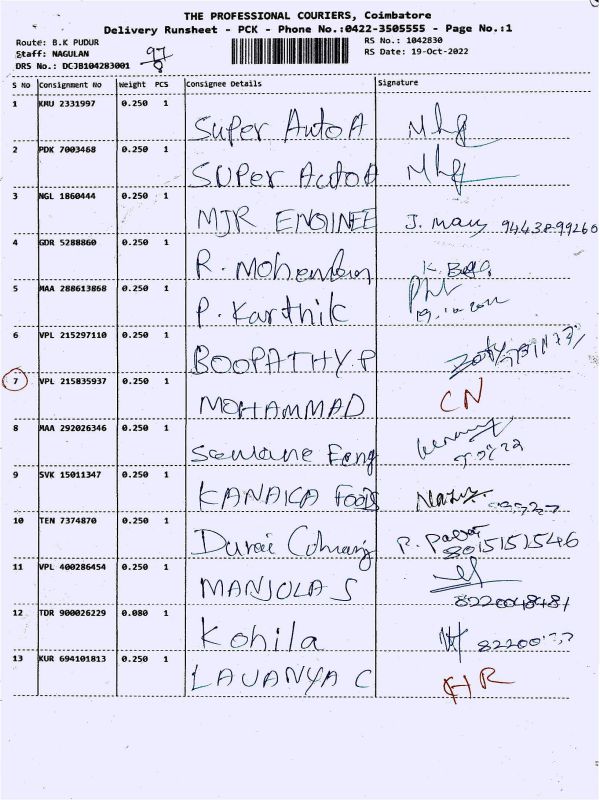 THE PROFESSIONAL COURIERS, Coimbatore
Delivery Runsheet - PCK - Phone No.:0422-3505555 - Page No.:1
Route: B.K PUDUR
RS No.: 1042830
Staff: NAGULAN
RS Date: 19-Oct-2022
DRS No.: DCJB104283001
S No Consignment No Weight PCS Consignee Details Signature
1 KMU 2331997 0.250 1 Super Auto A
2 PDK 7003468 0.250 1 SUPer Auto A
3 NGL 1860444 0.250 1 MJR ENGINEE J. mary 94438-99260
4 GDR 5288860 0.250 1 R.
5 MAA 288613868 0.250 1 P. Karthik 19.10.2022
6 VPL 215297110 0.250 1 BOOPATHY.P
7 VPL 215835937 0.250 1 MOHAMMAD CN
8 MAA 292026346 0.250 1
9 SVK 15011347 0.250 1 KANAKA FOODS
10 TEN 7374870 0.250 1 Durai P. 8015151546
11 VPL 400286454 0.250 1 MANJULA S 8220048481
12 TDR 900026229 0.080 1 Kohila
13 KUR 694101813 0.250 1 LAVANYA C HR